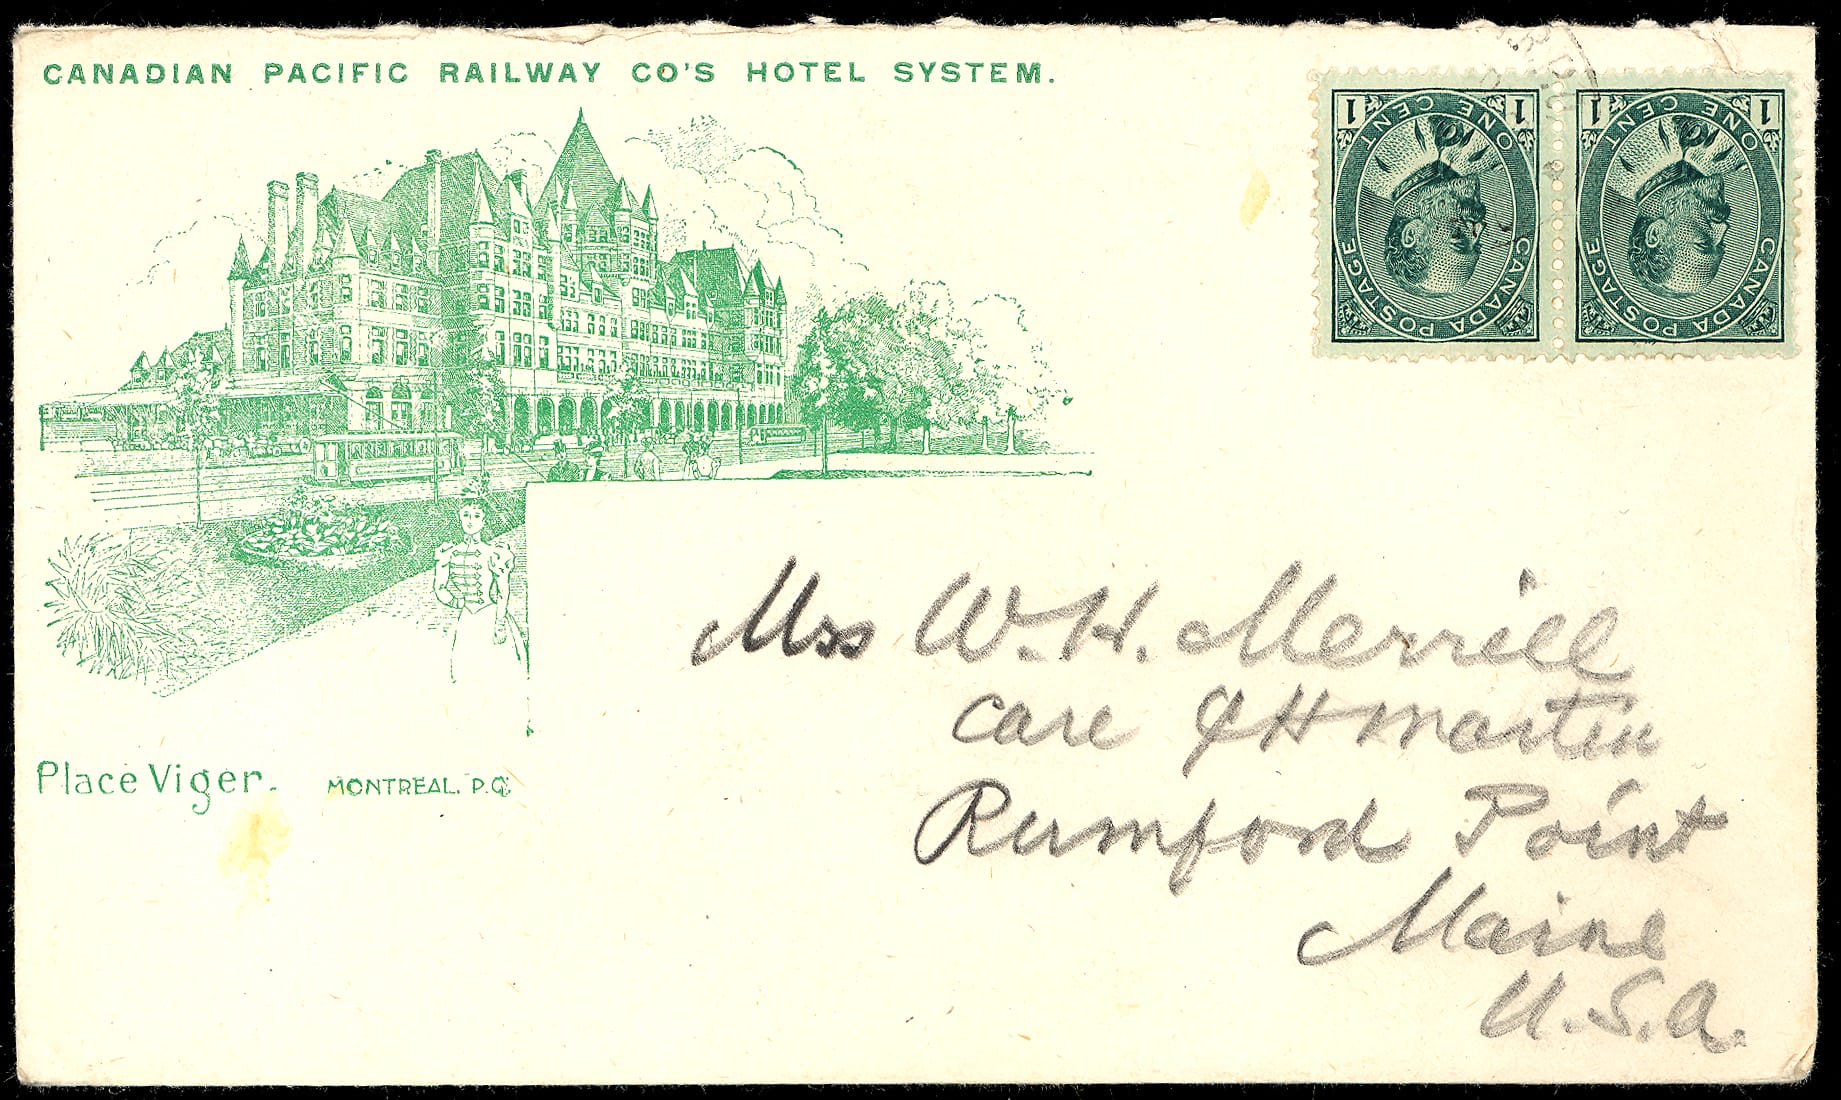 CANADIAN PACIFIC RAILWAY CO'S HOTEL SYSTEM.
1 1
ONE CENT
CANADA POSTAGE
1 1
ONE CENT
CANADA POSTAGE
Place Viger. MONTREAL. P.Q.
Mrs W. H. Merrill
care J H Martin
Rumford Point
Maine
U.S.A.